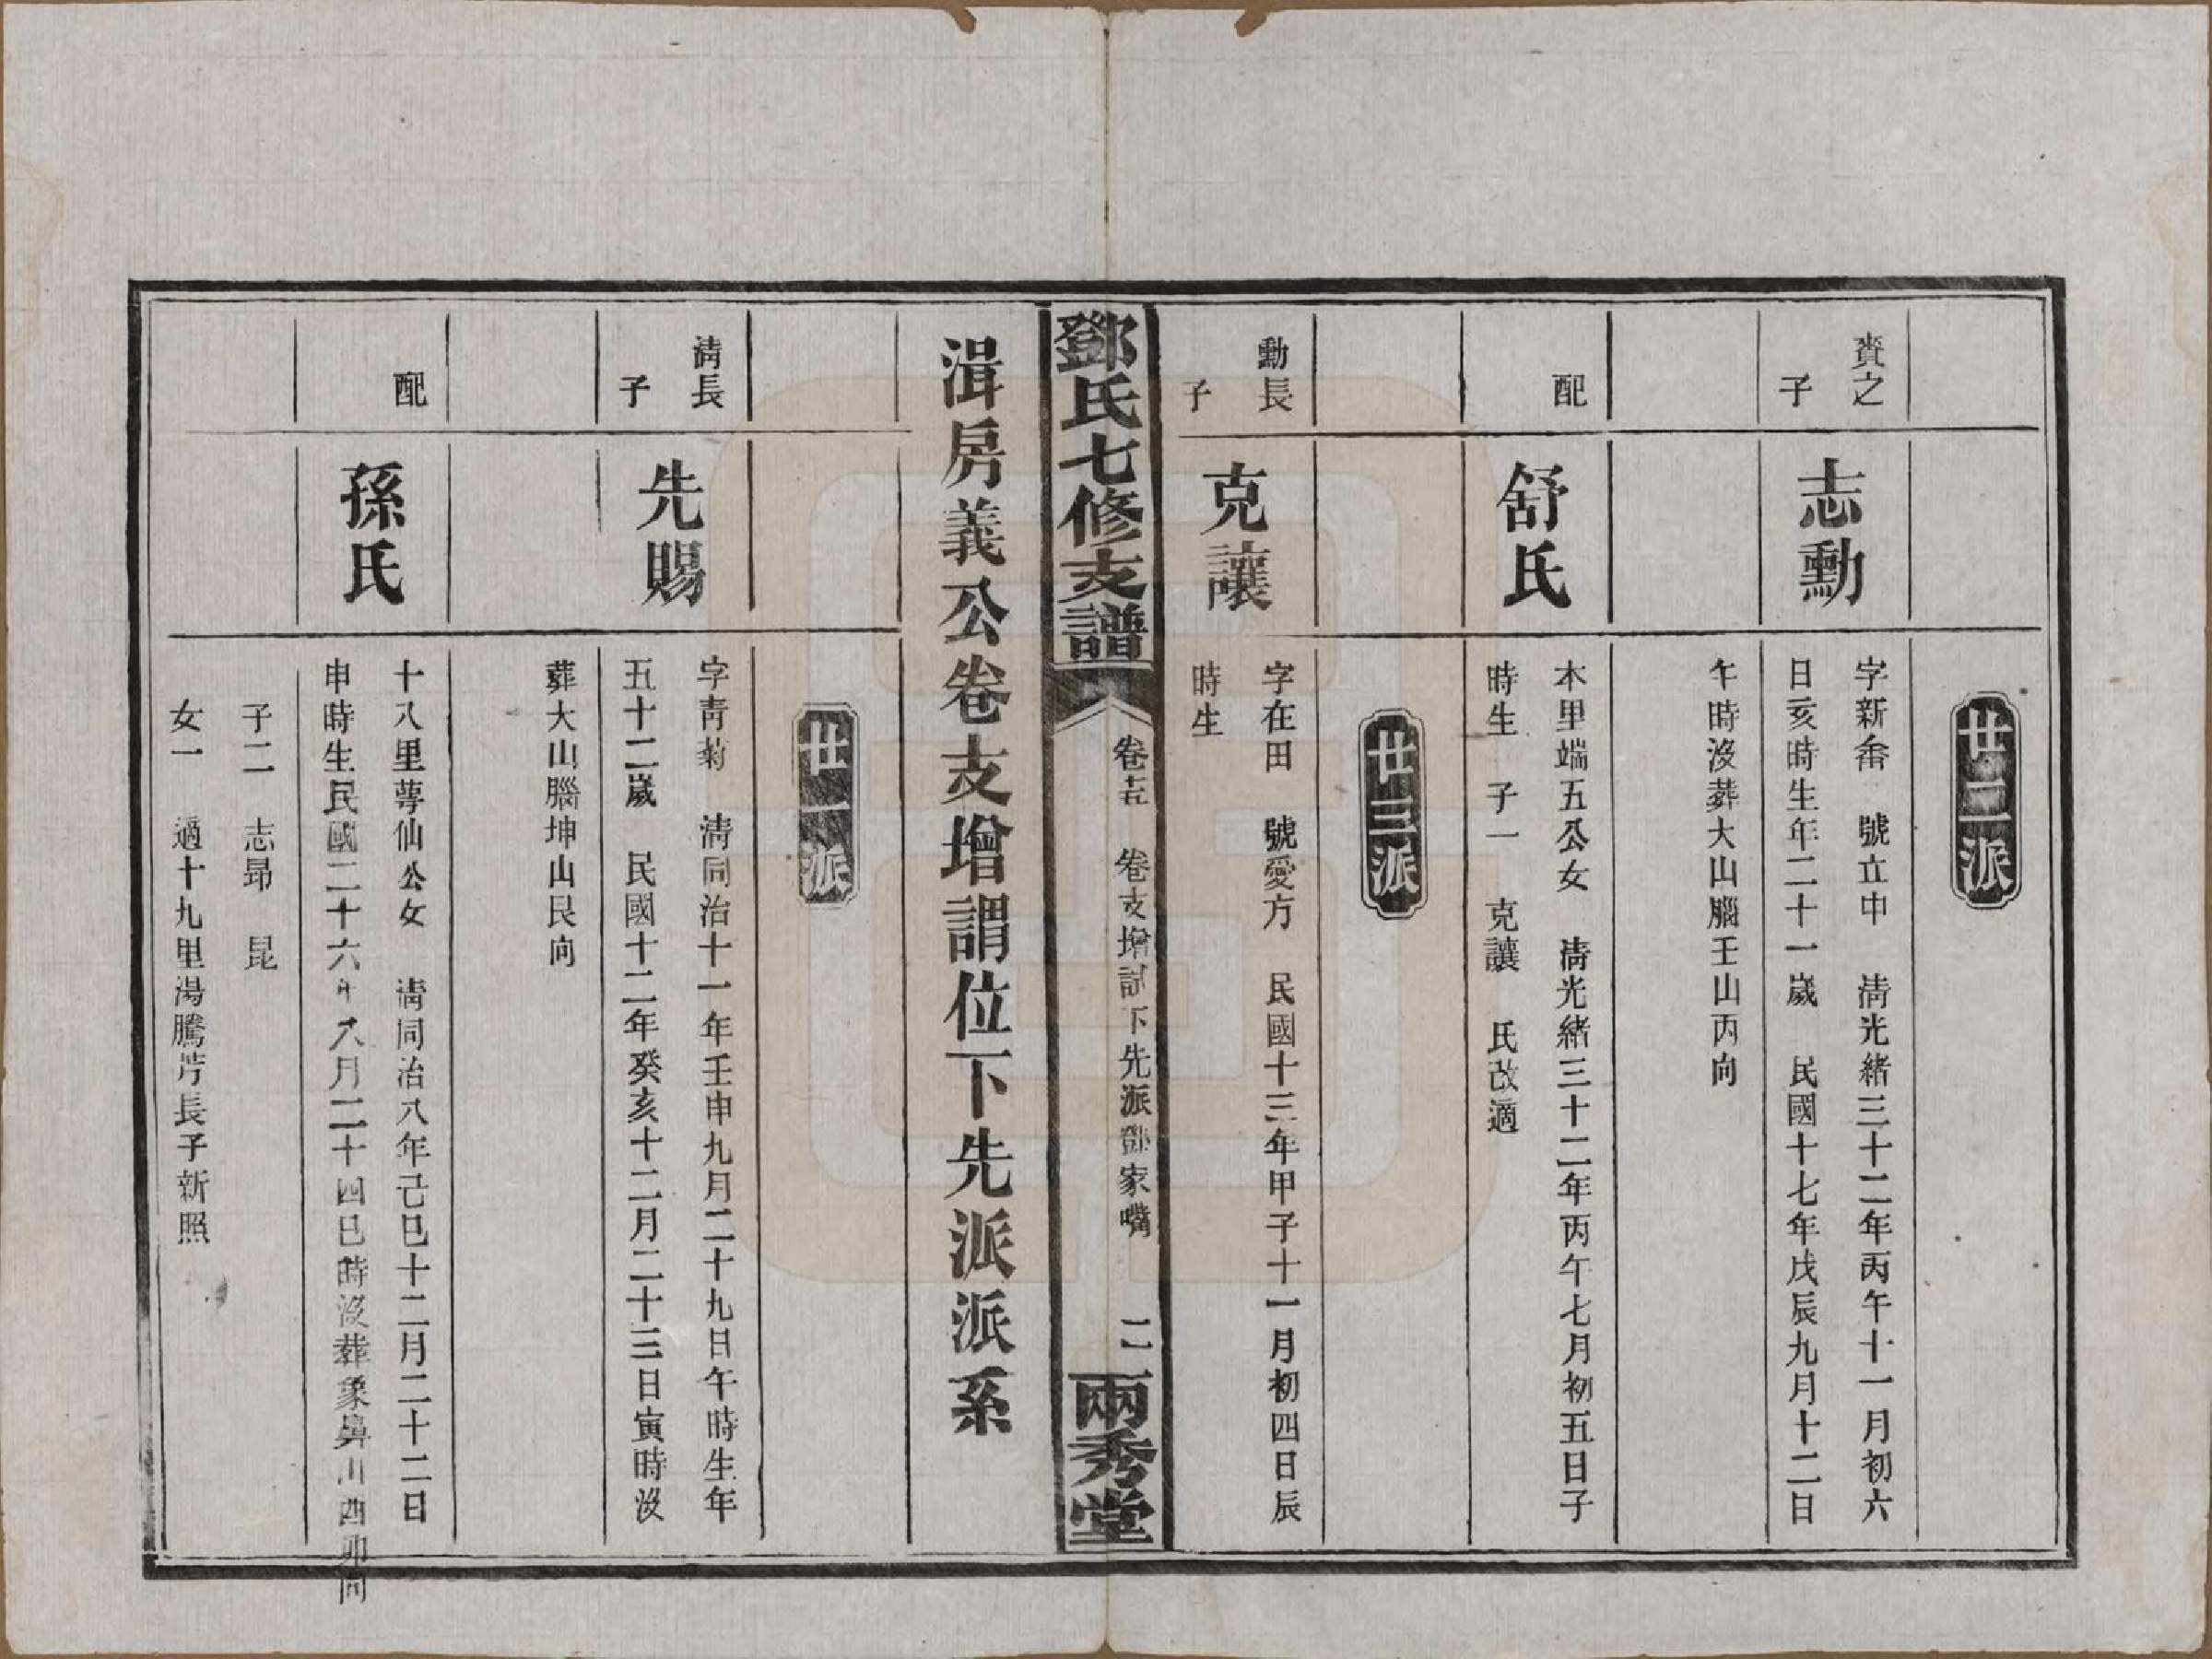 廿二派
賚之
子
志勳
字新畬 號立中 淸光緒三十二年丙午十一月初六
日亥時生年二十一歲 民國十七年戊辰九月十二日
午時沒葬大山腦壬山丙向
配
舒氏
木里端五公女 淸光緒三十二年丙午七月初五日子
時生 子一 克讓 氏改適
廿三派
勳長
子
克讓
字在田 號愛方 民國十三年甲子十一月初四日辰
時生
鄧氏七修支譜
卷十五 卷支增謂下先派鄧家嘴
二
兩秀堂
湒房義公卷支增謂位下先派派系
廿一派
淸長
子
先賜
字靑菊 淸同治十一年壬申九月二十九日午時生年
五十二歲 民國十二年癸亥十二月二十三日寅時沒
葬大山腦坤山艮向
配
孫氏
十八里萼仙公女 淸同治八年己巳十二月二十二日
申時生民國二十六年八月二十四巳時沒葬象鼻山酉卯向
子二 志昻 昆
女一 適十九里湯騰芳長子新照